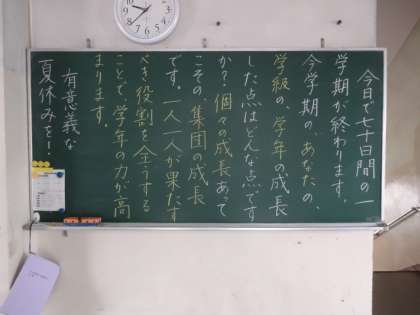 今日で七十日間の一
学期が終わります。
今学期の、あなたの、
学級の、学年の成長
した点はどんな点です
か？個々の成長あって
こその集団の成長
です。一人一人が果たす
べき役割を全うする
ことで学年の力が高
まります。
有意義な
夏休みを！！